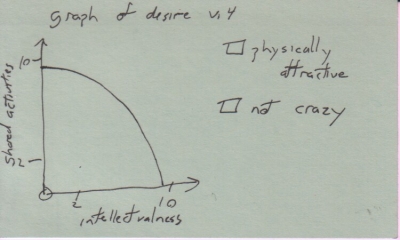 graph of desire v.4
10
physically
attractive
not crazy
shared activities
2
2
10
intellectualness